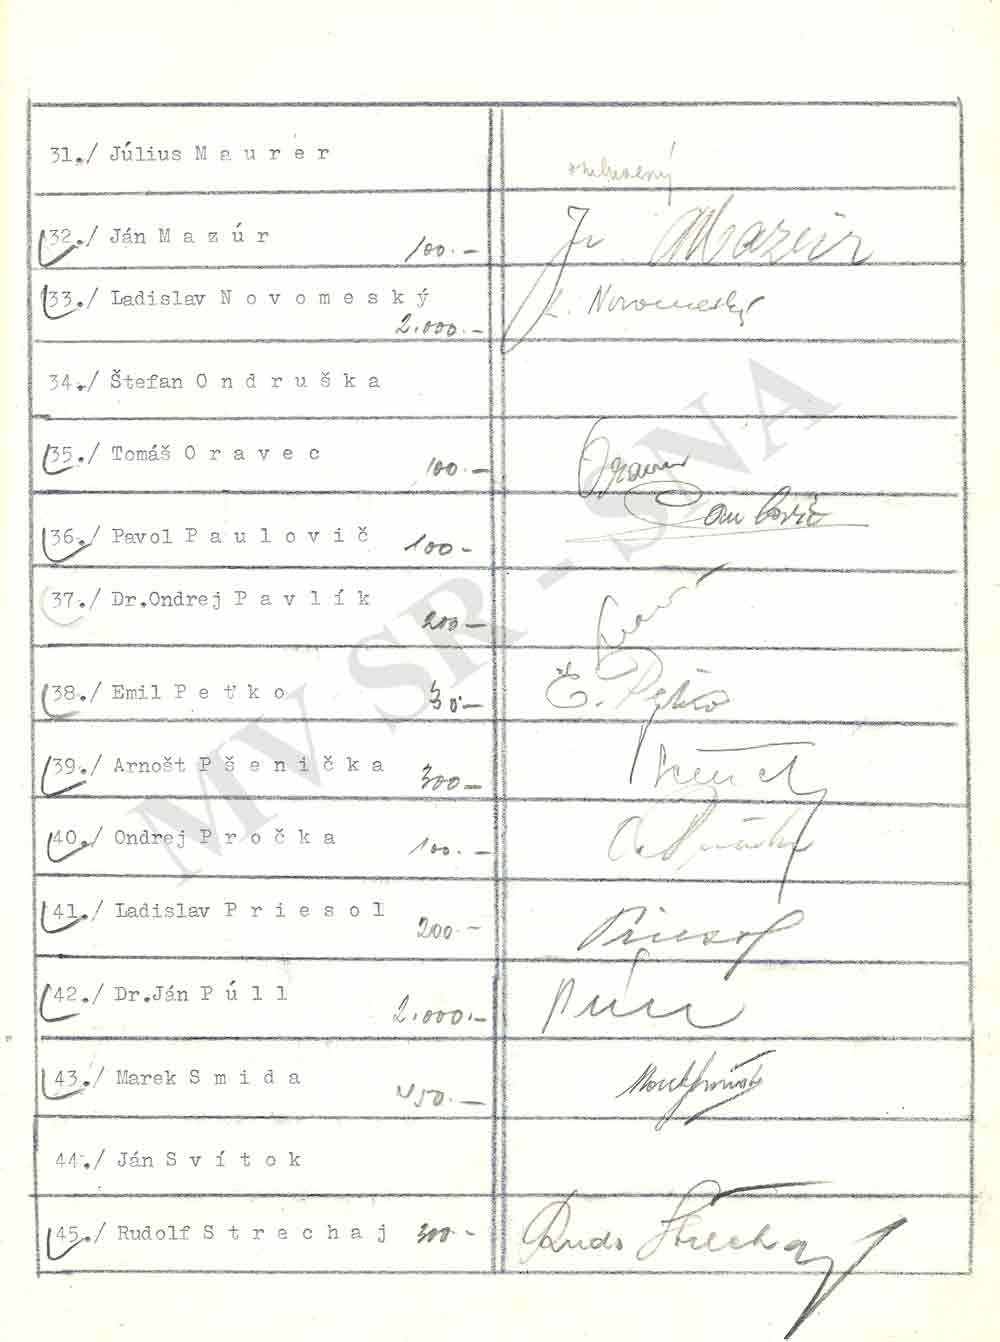 31./ Július M a u r e r
32./ Ján M a z ú r 100.- Mazúr
33./ Ladislav N o v o m e s k ý
2.000.- L. Novomeský
34./ Štefan O n d r u š k a
35./ Tomáš O r a v e c 100.- Oravec
36./ Pavol P a u l o v i č 100.- Paulovič
37./ Dr.Ondrej P a v l í k
200.-
38./ Emil P e ť k o 30.- E. Peťko
39./ Arnošt P š e n i č k a 300.-
40./ Ondrej P r o č k a 100.-
41./ Ladislav P r i e s o l 200.- Priesol
42./ Dr.Ján P ú l l 2.000.- Púll
43./ Marek S m i d a 450.-
44./ Ján S v í t o k
45./ Rudolf S t r e c h a j 300.- Rudo Strechaj
MV SR - SNA